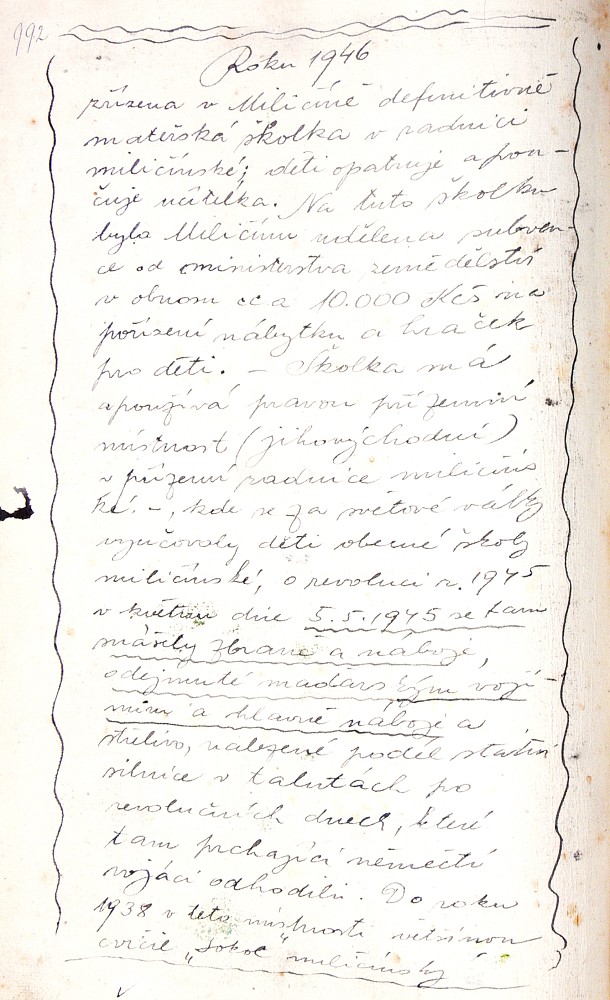 992
Roku 1946
zřízena v Miličíně definitivně
mateřská školka v radnici
miličínské; děti opatruje a pou-
čuje učitelka. Na tuto školku
byla Miličínu udělena subven-
ce od ministerstva zemědělství
v obnosu cca 10.000 Kčs na
pořízení nábytku a hraček
pro děti. - Školka má
a používá pravou přízemní
místnost (jihovýchodní)
v přízemí radnice miličíns
ké. -, kde se za světové války
vyučovaly děti obecné školy
miličínské, o revoluci r. 1945
v květnu dne 5.5.1945 se tam
snášely zbraně a náboje,
odejmuté maďarským vojí-
nům a hlavně náboje a
střelivo, nalezené podél státní
silnice v talutách po
revolučních dnech, které
tam prchající němečtí
vojáci odhodili. Do roku
1938 v této místnosti většinou
cvičil „Sokol“ miličínský